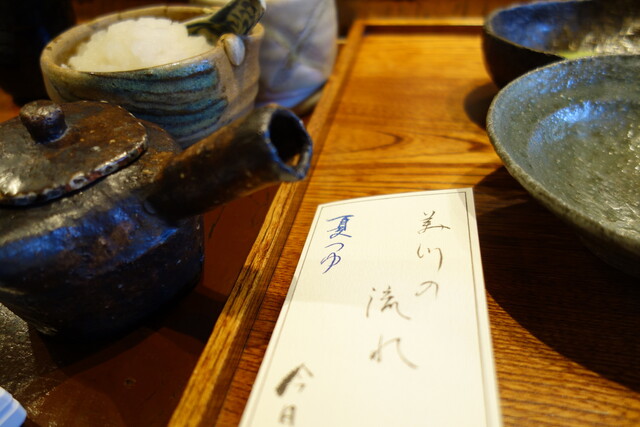 美川の
流れ
今日
夏つゆ